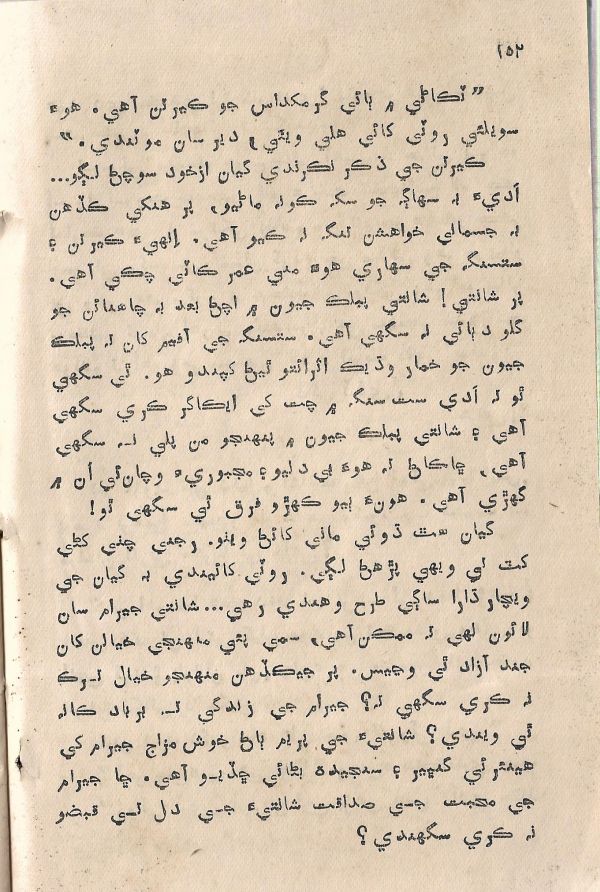 ١٥٢
”ٽڪاڻي ۾ ٻائي گرمکداس جو ڪيرتن آهي. هوءَ
سويلئي روٽي کائي هلي ويئي، دير سان موٽندي.“
ڪيرتن جي ذڪر نڪرندي گيان ازخود سوچڻ لڳو...
اَديءَ بہ سهاڳہ جو سک ڪونہ ماڻيو، پر هنکي ڪڏهن
بہ جسماني خواهشن تنگ نہ ڪيو آهي. اِنهيءَ ڪيرتن ۽
ستسنگ جي سهاري هوءَ مني عمر ڪاٽي چڪي آهي.
پر شانتي! شانتي پبلڪ جيون ۾ اچڻ بعد بہ چاهنائن جو
گلو دٻائي نہ سگهي آهي. ستسنگ جي آفيم کان تہ پبلڪ
جيون جو خمار وڌيڪ اثرائتو ٿيڻ کپندو هو. ٿي سگهي
ٿو تہ اَدي ست سنگ ۾ چت کي ايڪاگر ڪري سگهي
آهي ۽ شانتي پبلڪ جيون ۾ پنهنجو من پلي نہ سگهي
آهي، ڇاڪاڻ تہ هوءَ بي دليو ۽ مجبوريءَ وچان ئي اُن ۾
گهڙي آهي. هونءَ ٻيو ڪهڙو فرق ٿي سگهي ٿو!
گيان هٿ ڌوئي ماني کائڻ ويٺو. رجني چٺي کڻي
کٽ تي ويهي پڙهڻ لڳي. روٽي کائيندي بہ گيان جي
ويچار ڌارا ساڳي طرح وهندي رهي... شانتي جيرام سان
لائون لهي تہ ممڪن آهي، سمي پٽي منهنجي خيالن کان
جند آزاد ٿي وڃيس. پر جيڪڏهن منهنجو خيال ترڪ
نہ ڪري سگهي تہ؟ جيرام جي زندگي تہ برباد ڪانہ
ٿي ويندي؟ شانتيءَ جي پريم ٻاڻ خوش مزاج جيرام کي
هينئر ئي گنڀير ۽ سنجيدہ بڻائي ڇڏيو آهي. ڇا جيرام
جي محبت جي صداقت شانتيءَ جي دل تي قبضو
نہ ڪري سگهندي؟